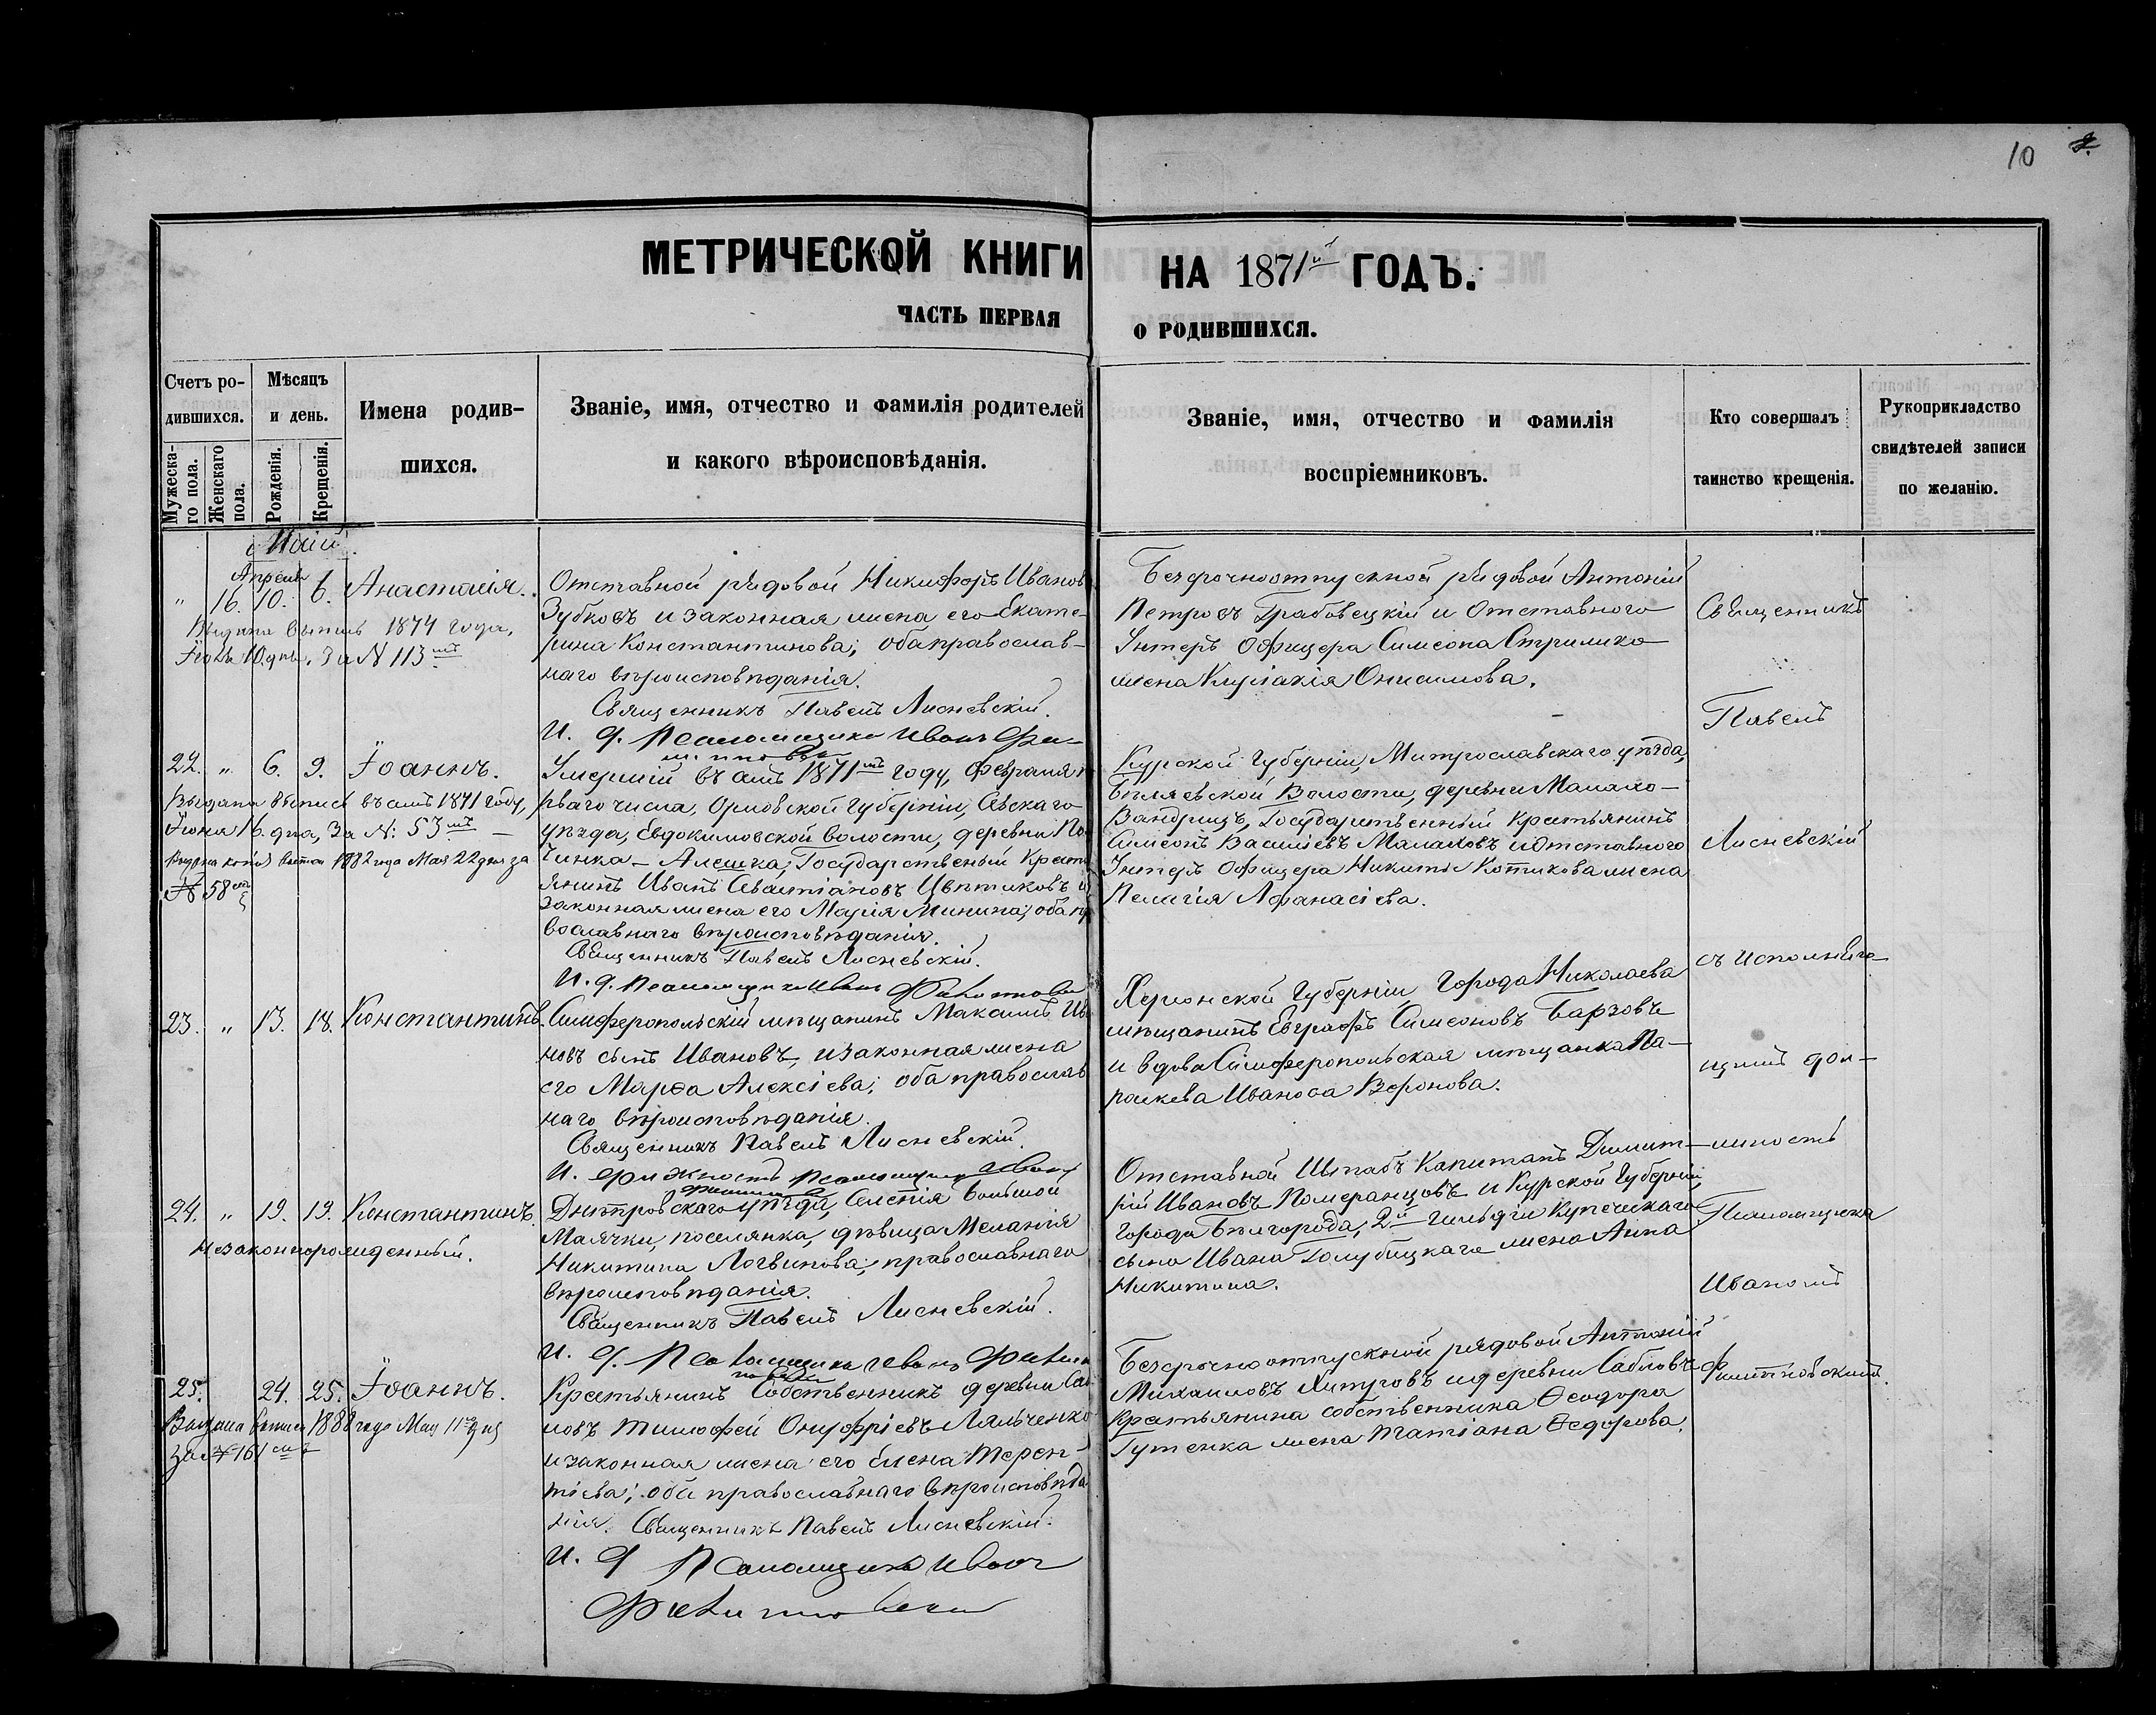 10
МЕТРИЧЕСКОЙ КНИГИ НА 1871й ГОДЪ.
ЧАСТЬ ПЕРВАЯ О РОДИВШИХСЯ.
Счетъ ро-
дившихся.
Мужеска-
го пола.
Женскаго
пола.
Мѣсяцъ
и день.
Рожденія.
Крещенія.
Имена родив-
шихся.
Званіе, имя, отчество и фамилія родителей
и какого вѣроисповѣданія.
Званіе, имя, отчество и фамилія
воспріемниковъ.
Кто совершалъ
таинство крещенія.
Рукоприкладство
свидѣтелей записи
по желанію.
Маій.
Апрель
" 16. 10. 6. Анастасія.
Выдана выпись 1874 года,
10 дня, За N 113
Отставной рядовой Никифоръ Иванов
Зубковъ и законная жена его Екате-
рина Константинова; оба православ-
наго вѣроисповѣданія.
Священникъ Павелъ Лисневскій.
И. д. Псаломщика Иванъ
Безсрочноотпускной рядовой Антоній
Петровъ Грабовецкій и Отставного
Унтеръ Офицера Симеона Стрижико
жена Киріакія Онисимова.
22. " 6. 9. Іоаннъ.
Выдана выпись въ 1871 году,
Іюня 16. дня, За N: 53
Выдана копія выписи 1882 года Мая 22 дня за
N 58
Умершій въ 1871 году, Февраля
рваго числа, Орловской Губерніи, Сѣвскаго
уѣзда, Евдокимовской волости, деревни По
чинка-Алешка, Государственый Крест
янинъ Иванъ Севастіановъ Цвѣтковъ и
законная жена его Марія Минина; оба пр
вославнаго вѣроисповѣданія.
Священникъ Павелъ Лисневскій.
И. д. Псаломщика Иванъ
Курской Губерніи, уѣзда,
Бѣляевской Волости, деревни
Государственный Крестьянинъ
Симеонъ Васильевъ Малаховъ и Отставного
Унтеръ Офицера Никиты Котикова жена
Пелагія Афанасіева.
23. " 13. 18. Константинъ.
Симферопольскій мѣщанинъ Максимъ Ив
новъ сынъ Ивановъ, и законная жена
его Марѳа Алексіева; оба православ
наго вѣроисповѣданія.
Священникъ Павелъ Лисневскій.
И. должность Псаломщика Иванъ
Херсонской Губерніи, Города Николаева
мѣщанинъ Евграфъ Симеоновъ
и вдова Симферопольская мѣщанка Па-
раскева Иванова
24. " 19. 19. Константинъ.
незаконнорожденный.
Днѣпровскаго уѣзда, Селенія Большой
Маячки, поселянка, дѣвица Меланія
Никитина Логвинова; православнаго
вѣроисповѣданія.
Священникъ Павелъ Лисневскій.
И. д. Псаломщика Иванъ
Отставной Штабъ Капитанъ Димит-
рій Ивановъ Померанцовъ и Курской Губерніи,
Города Бѣлгорода, 2й гильдіи Купеческаго
сына Ивана Голубицкаго жена Анна
Никитина.
25. 24. 25. Іоаннъ.
Выдана выпись 1888 года Мая 11го дня
за N 161
Крестьянинъ Собственникъ деревни Саб
ловъ Тимофей Онуфріевъ Ляльченко
и законная жена его Елена Терен-
тіева; оба православнаго вѣроисповѣда
нія. Священникъ Павелъ Лисневскій.
И. д Псаломщика Иванъ
Безсрочноотпускной рядовой Антоній
Михаиловъ Хитровъ и деревни Сабловъ
Крестьянина собственника Ѳеодора
Гутенка жена Татіана Ѳедорова.
Священникъ
Павелъ
Лисневскій
съ исполняю-
щимъ дол-
жность
Псаломщика
Иваномъ